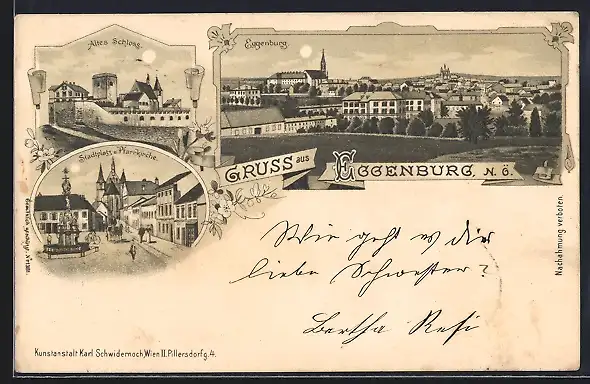 Altes Schloss.
Eggenburg
Stadtplatz u. Pfarrkirche.
GRUSS aus EGGENBURG, N. Ö.
Wie geht es dir
liebe Schwester?
Bertha Resi
Nachahmung verboten.
Kunstanstalt Karl Schwidernoch, Wien II. Pillersdorfg. 4.